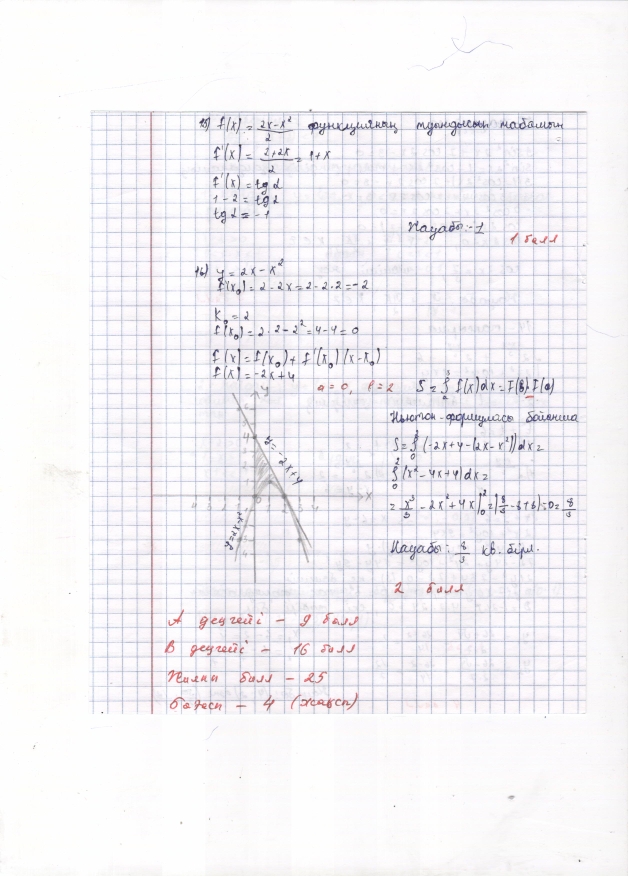 15) f(x) = (2x-x²)/2 функцияның туындысын табамын
f'(x) = (2+2x)/2 = 1+x
f'(x) = tg α
1-2 = tg α
tg α = -1
Жауабы: -1
1 балл
16) y = 2x - x²
f'(x₀) = 2-2x = 2-2·2 = -2
x₀ = 2
f(x₀) = 2·2-2² = 4-4 = 0
f(x) = f(x₀) + f'(x₀)(x-x₀)
f(x) = -2x+4
a = 0, b = 2
Ньютон-формуласы бойынша
S = ∫₀² (-2x+4-(2x-x²))dx =
∫₀² (x²-4x+4)dx =
= x³/3 - 2x² + 4x |₀² = (8/3-8+8)-0 = 8/3
Жауабы: 8/3 кв. бірл.
2 балл
y = -2x+4
y = 2x-x²
А деңгейі - 9 балл
В деңгейі - 16 балл
Жалпы балл - 25
бағасы - 4 (жақсы)